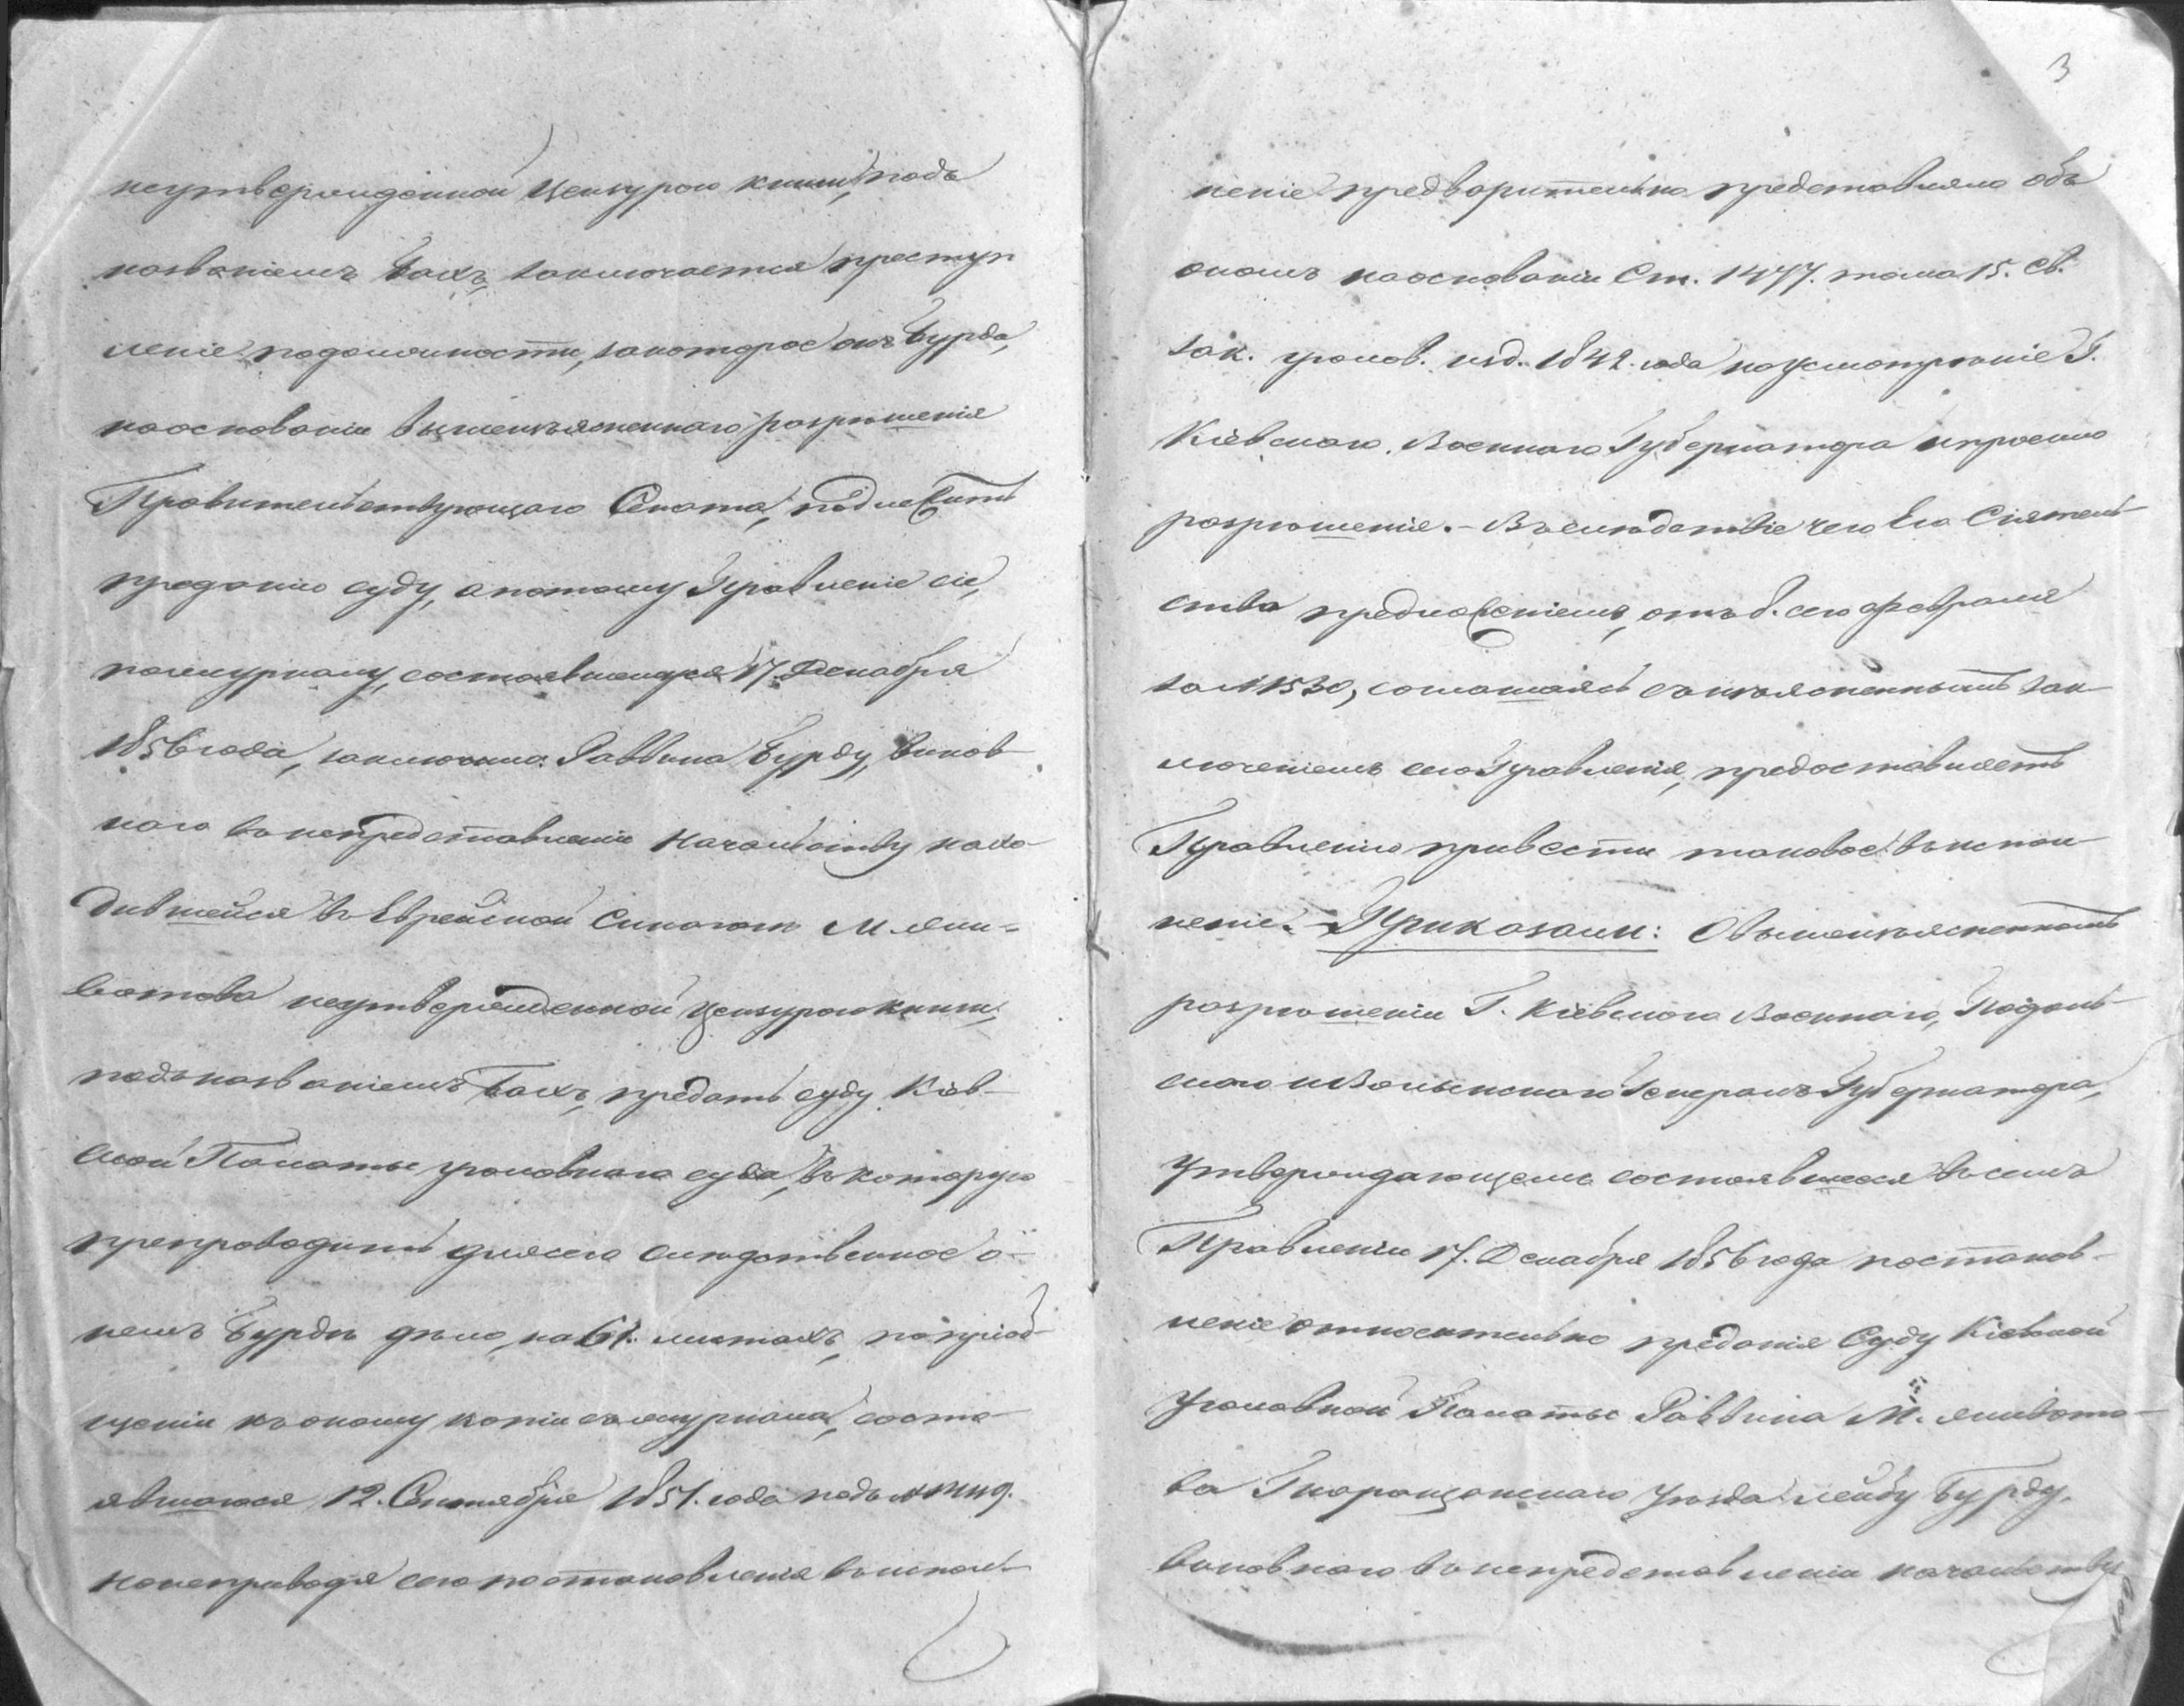 неутвержденной Цензурою книги, подъ
названіемъ Бахъ, заключается преступ
леніе подолжности, закоторое онъ Бурда,
наоснованіи вышеизъясненнаго разрѣшенія
Правительствующаго Сената, подлежитъ
преданію суду, а потому Правленіе сіе,
пожурналу, состоявшемуся 17. Декабря
1856 года, заключило: Раввина Бурду, винов-
наго въ непредставленіи Начальству нахо-
дившейся въ Еврейской Синагогѣ М. Жи-
вотова неутвержденной цензурою книги,
подъ названіемъ Бахъ, предать суду Кіев-
ской Палаты уголовнаго суда, въ которую
препроводить для сего слѣдственное о
немъ Бурдѣ дѣло, на 61. листахъ, по пріоб-
щеніи къ оному копіи съ журнала, состо-
явшагося 12. Сентября 1851. года подъ №
но неприводя сего постановленія въ испол-
3
неніе предворительно представляло объ
ономъ на основаніи Ст. 1477. тома 15. Св.
зак. уголов. изд. 1842. года на усмотрѣніе Г.
Кіевскаго Военнаго Губернатора и просило
разрѣшенія. – Въ слѣдствіе чего Его Сіятель-
ство предложеніемъ, отъ 8. сего февраля
за № 1530, соглашаясь съ изъясненнымъ зак-
люченіемъ сего Правленія, предоставляетъ
Правленію привести таковое въ испол-
неніе. – Приказали: О вышеизъясненномъ
разрѣшеніи Г. Кіевскаго Военнаго, Подоль-
скаго и Волынскаго Генералъ Губернатора,
утверждающемъ состоявшееся въ семъ
Правленіи 17. Декабря 1856 года постанов-
леніе относительно преданія Суду Кіевской
Уголовной Палаты Раввина М. Живото-
ва Таращанскаго уѣзда Лейбу Бурду,
виновнаго въ непредставленіи начальству